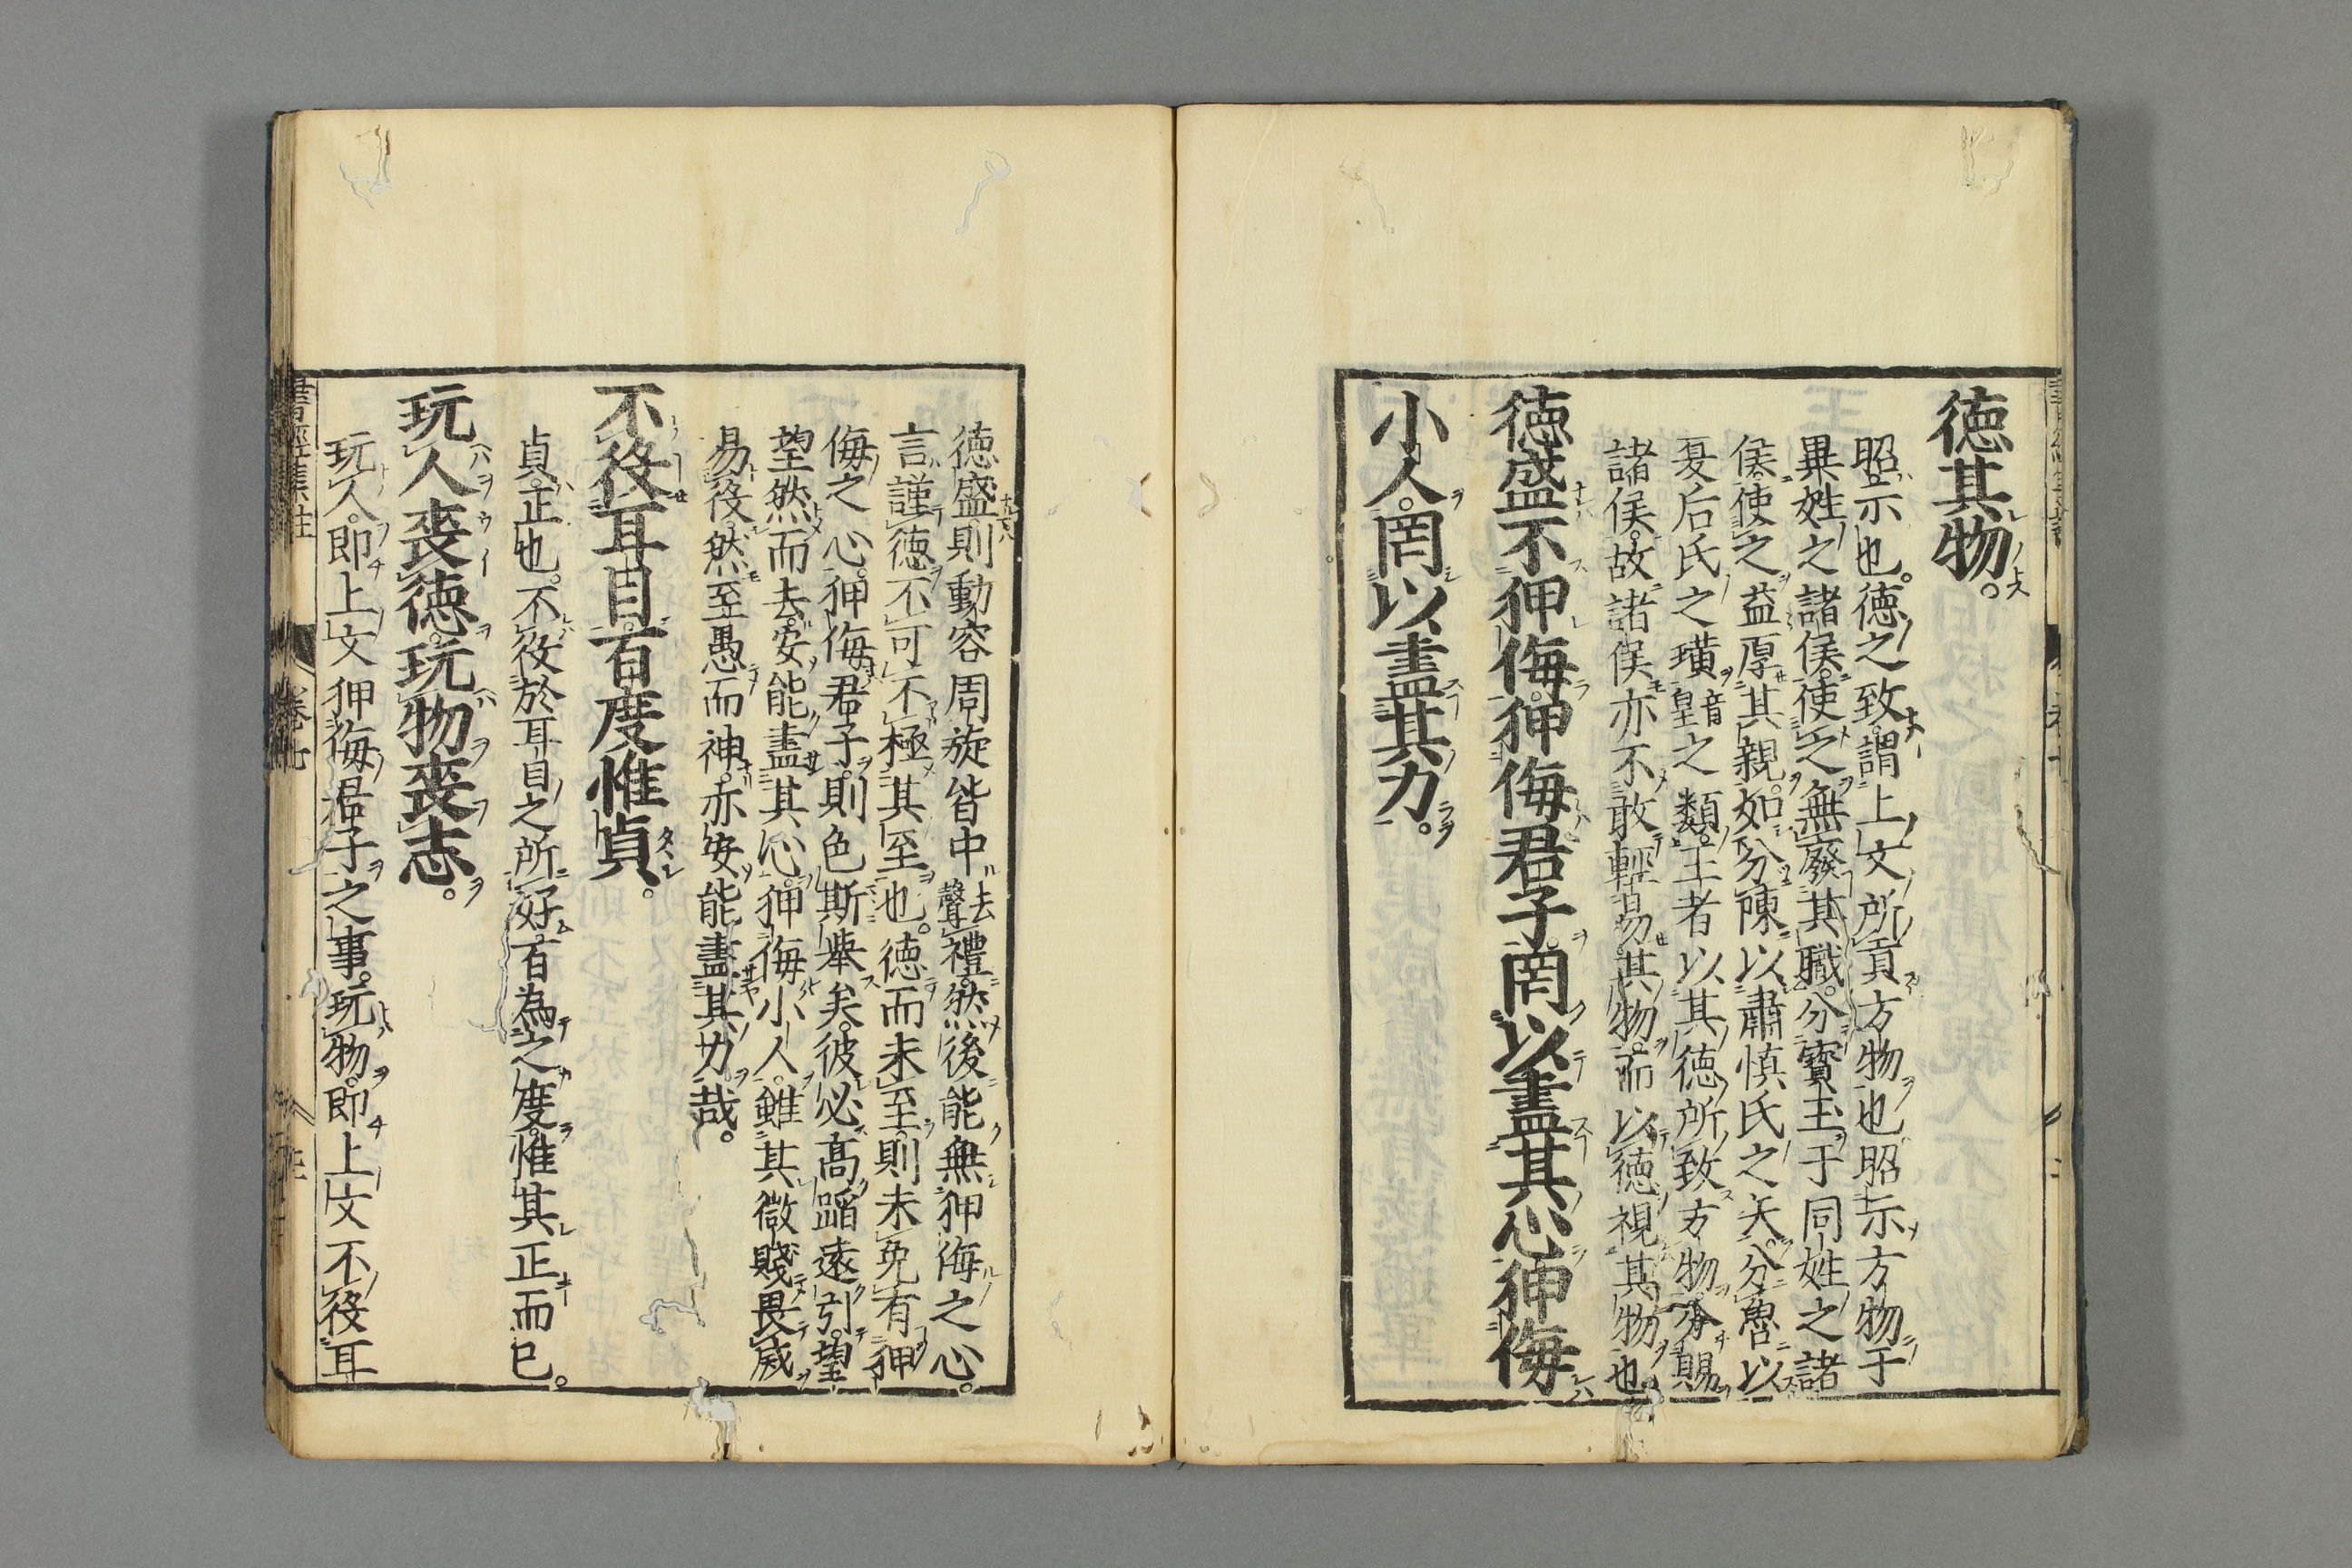 徳其物。
昭示也。徳之致謂上文所貢方物也昭示方物于
異姓之諸侯。使之無廢其職。分寶玉于同姓之諸
侯。使之益厚其親。如分陳以肅慎氏之矢。分魯以
夏后氏之璜音皇之類。王者以其徳所致方物分賜
諸侯。故諸侯亦不敢輕易其物。而以徳視其物也
徳盛不狎侮。狎侮君子。罔以盡其心。狎侮
小人。罔以盡其力。
徳盛則動容周旋皆中去聲禮。然後能無狎侮之心。
言謹徳不可不極其至也。徳而未至。則未免有狎
侮之心。狎侮君子。則色斯舉矣。彼必高蹈遠引。望
望然而去。安能盡其心。狎侮小人。雖其微賤畏威
易役。然至愚而神。亦安能盡其力哉。
不役耳目。百度惟貞。
貞正也。不役於耳目之所好。百為之度。惟其正而已。
玩人喪徳。玩物喪志。
玩人。即上文狎侮君子之事。玩物。即上文不役耳
書經集註 卷七